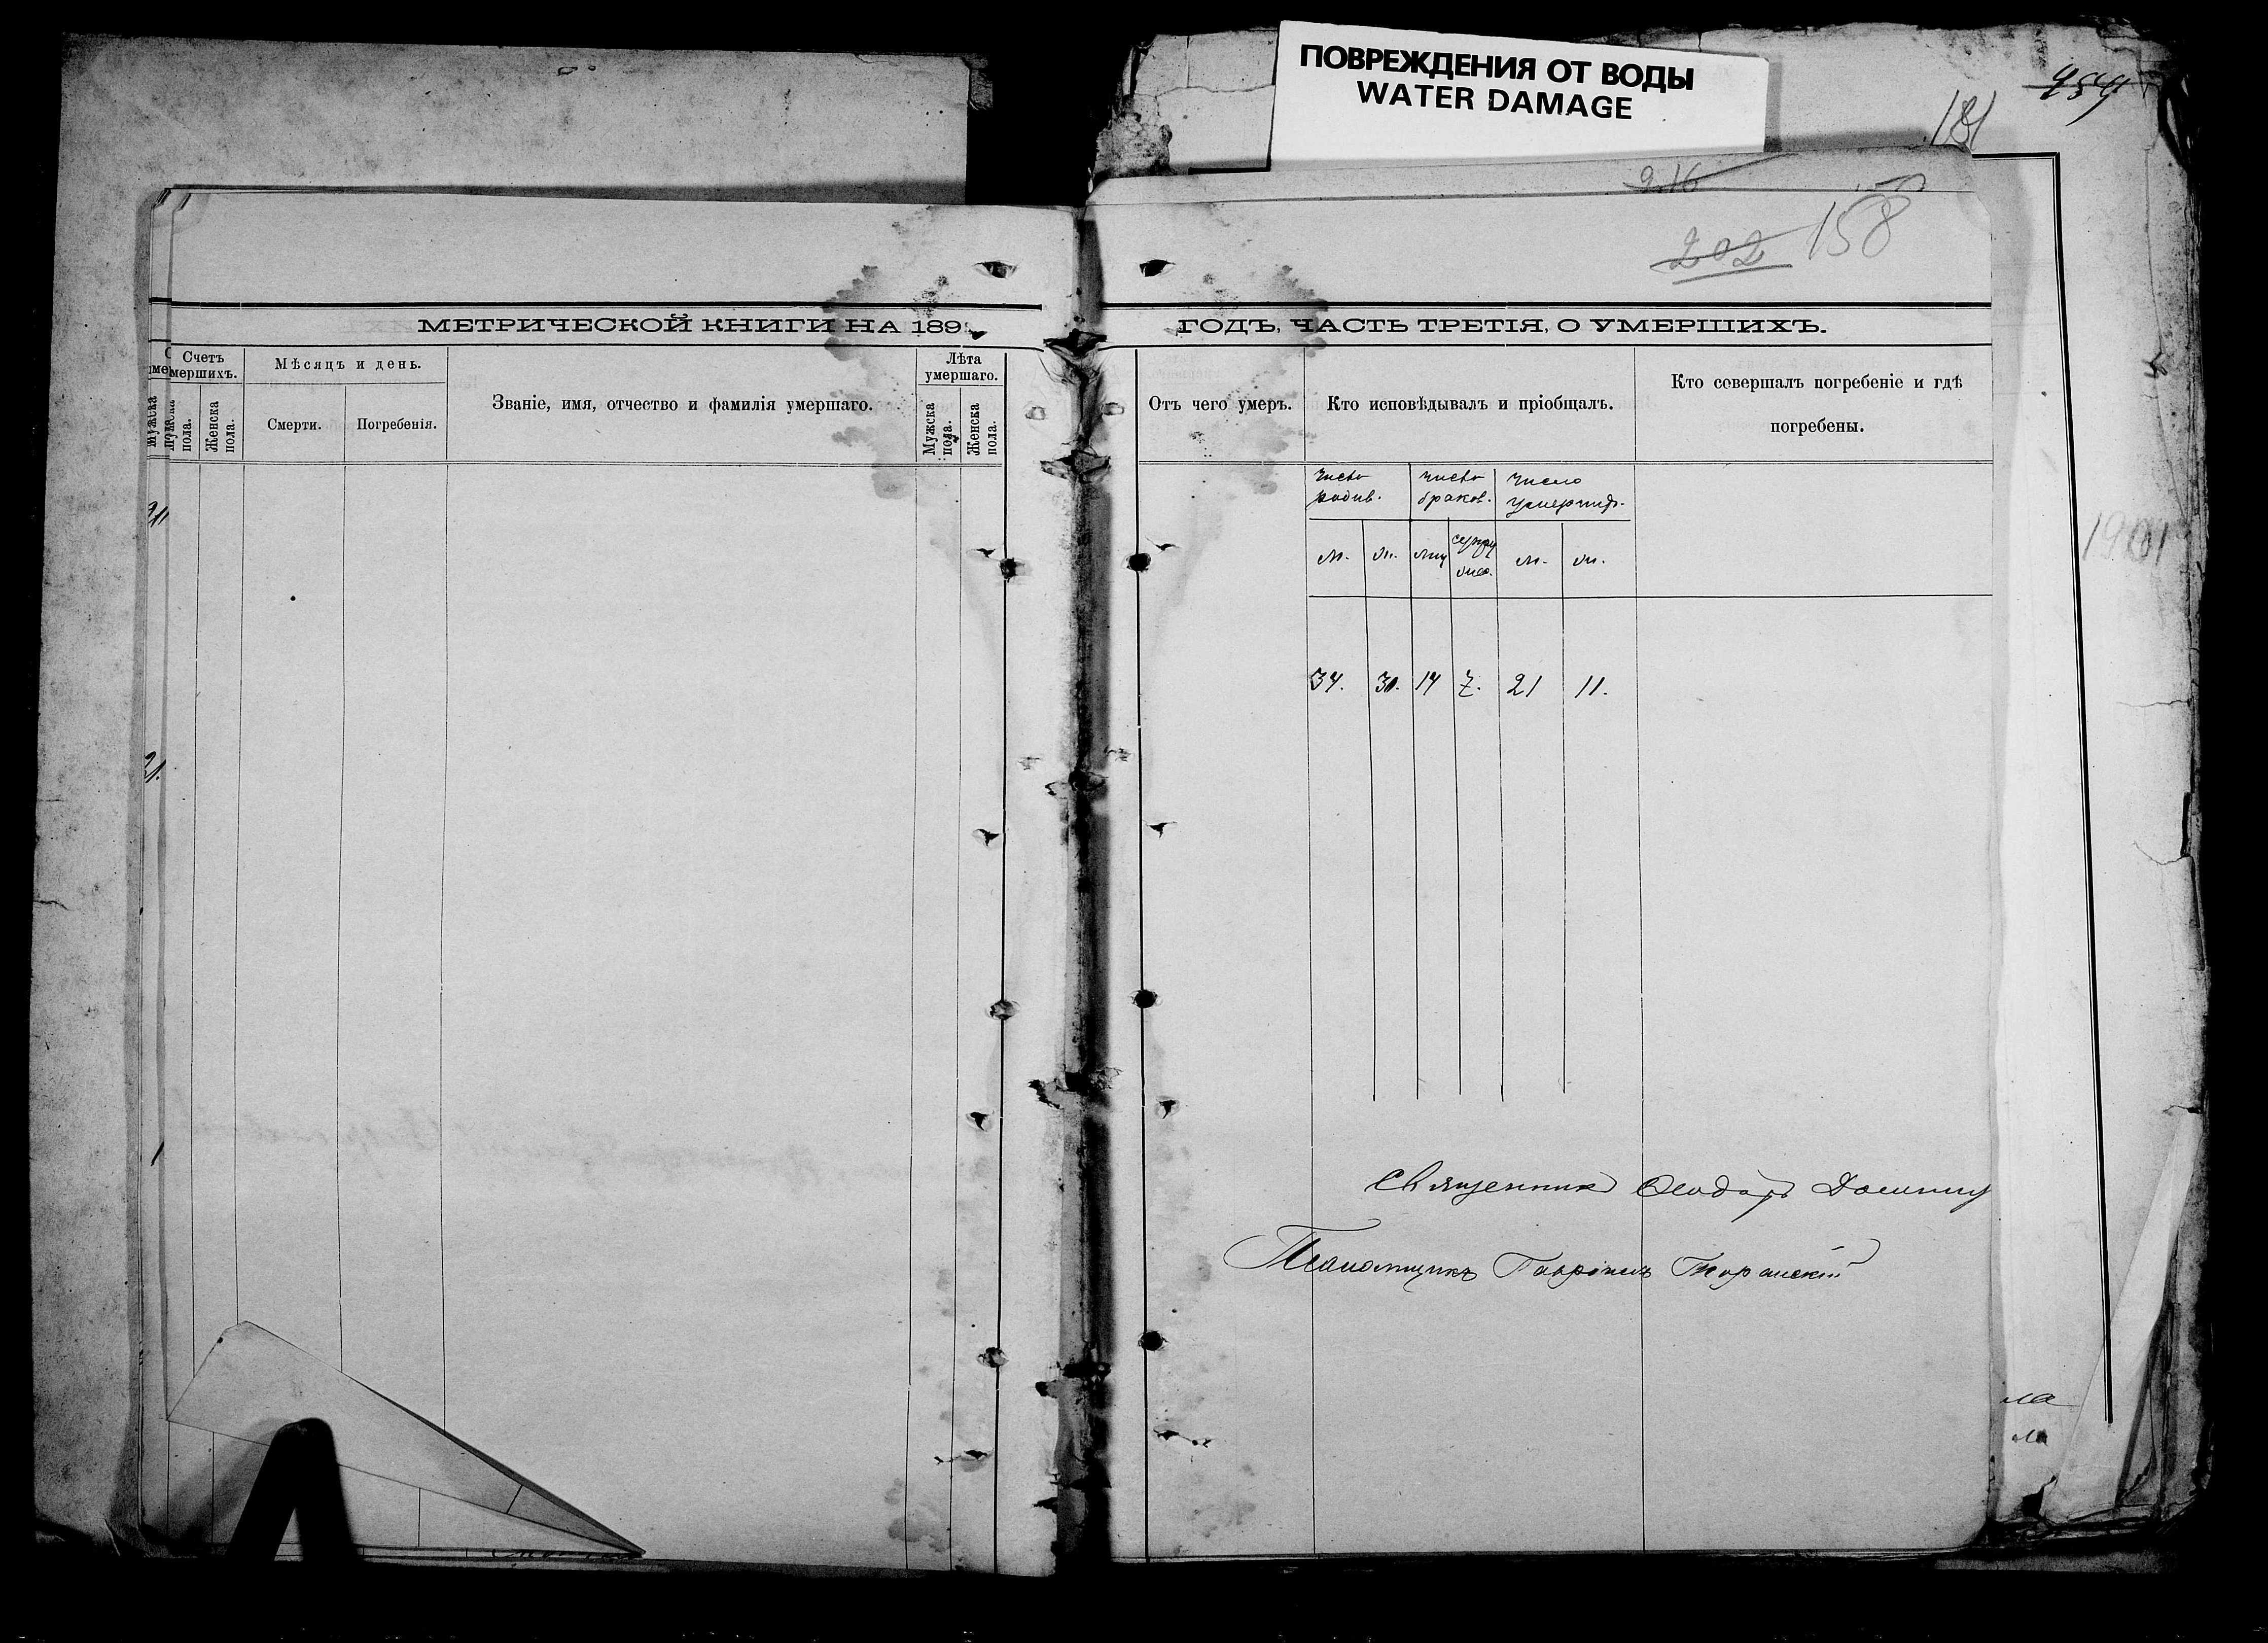 ПОВРЕЖДЕНИЯ ОТ ВОДЫ
WATER DAMAGE
181
216
202 158
МЕТРИЧЕСКОЙ КНИГИ НА 189
Счетъ
мершихъ.
Мѣсяцъ и день.
Званіе, имя, отчество и фамилія умершаго.
Лѣта
умершаго.
Мужска
пола.
Женска
пола.
Смерти.
Погребенія.
Мужска
пола.
Женска
пола.
21
21.
1
ГОДЪ, ЧАСТЬ ТРЕТІЯ, О УМЕРШИХЪ.
Отъ чего умеръ.
Кто исповѣдывалъ и пріобщалъ.
Кто совершалъ погребеніе и гдѣ
погребены.
число
число
браков.
число
м.
м.
34. 30. 14 7. 21 11.
1901
Священник Ѳеодоръ
Псаломщикъ Гавріилъ
ла
ла